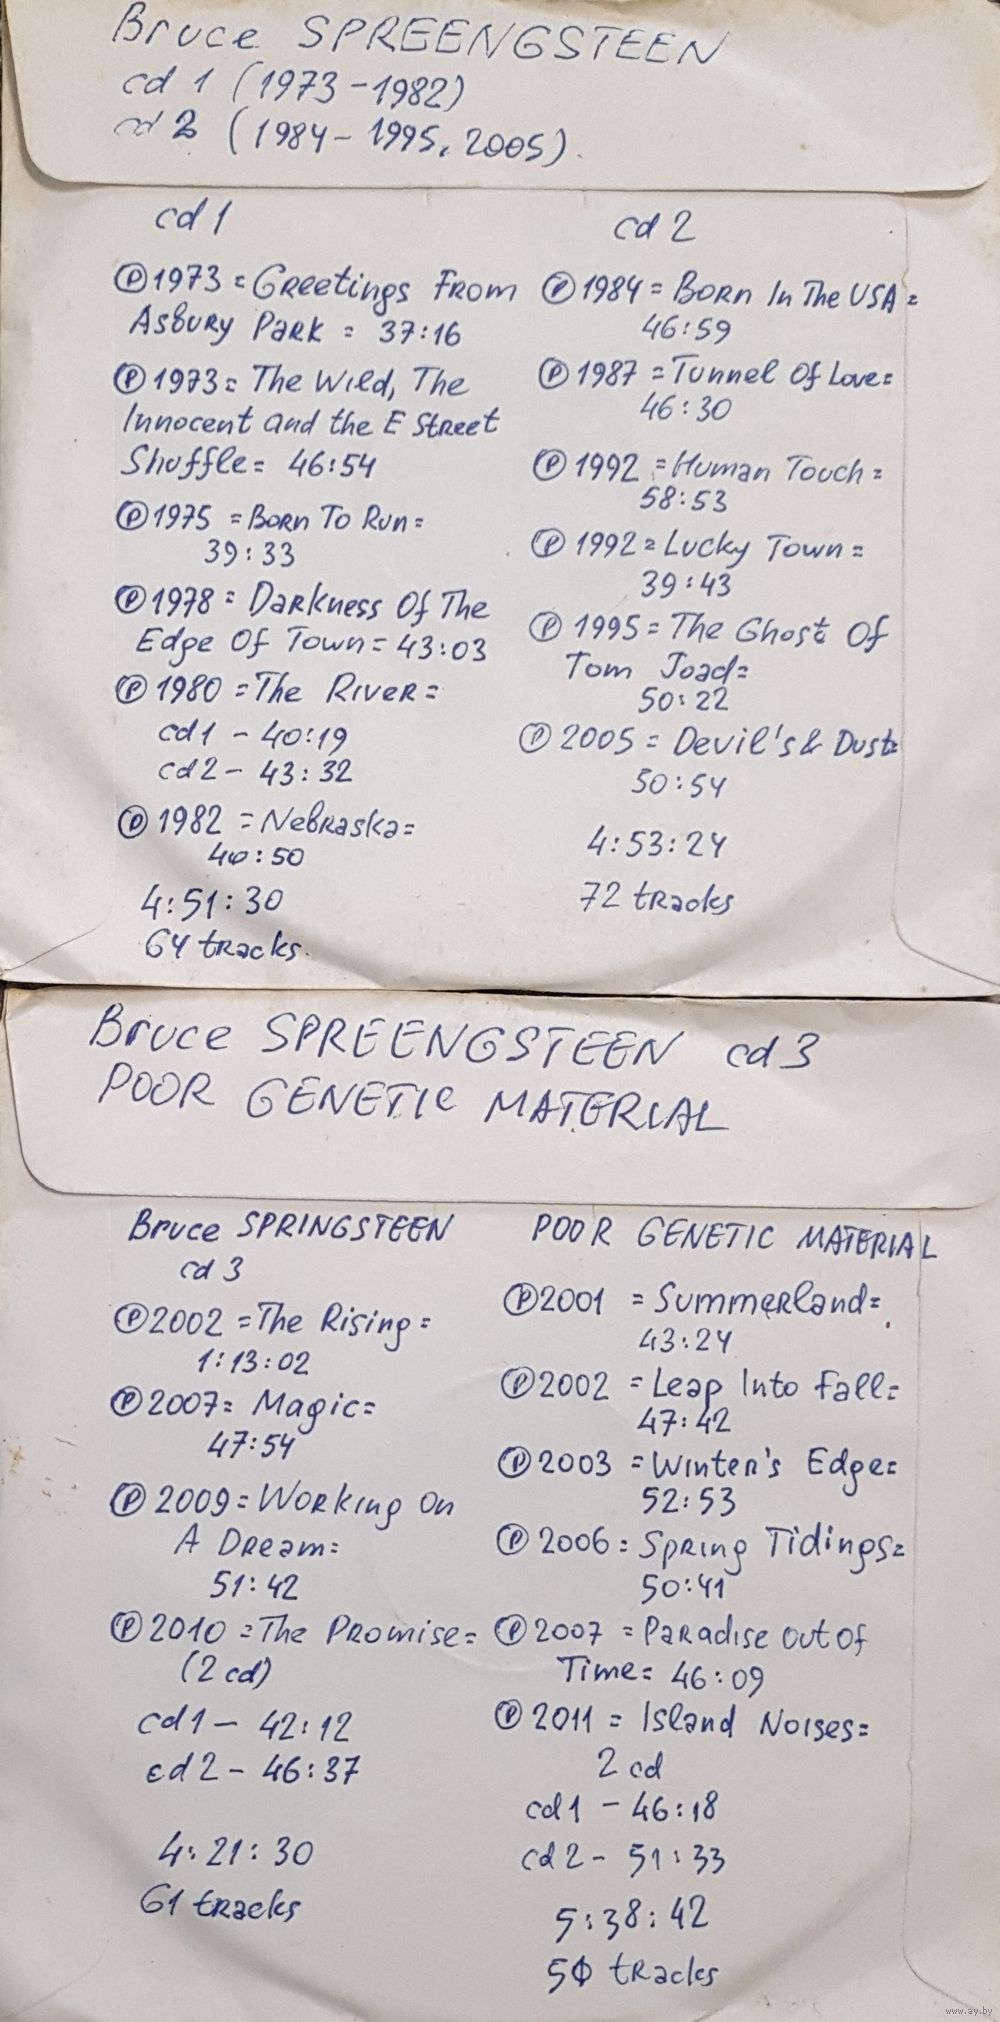 Bruce SPREENGSTEEN
cd 1 (1973-1982)
cd 2 (1984-1995, 2005).
cd 1
Ⓟ 1973 = Greetings From
Asbury Park = 37:16
Ⓟ 1973 = The Wild, The
Innocent and the E Street
Shuffle = 46:54
Ⓟ 1975 = Born To Run =
39:33
Ⓟ 1978 = Darkness Of The
Edge Of Town = 43:03
Ⓟ 1980 = The River =
cd1 - 40:19
cd2 - 43:32
Ⓟ 1982 = Nebraska =
40:50
4:51:30
64 tracks.
cd 2
Ⓟ 1984 = Born In The USA =
46:59
Ⓟ 1987 = Tunnel Of Love =
46:30
Ⓟ 1992 = Human Touch =
58:53
Ⓟ 1992 = Lucky Town =
39:43
Ⓟ 1995 = The Ghost Of
Tom Joad =
50:22
Ⓟ 2005 = Devil's & Dust =
50:54
4:53:24
72 tracks
Bruce SPREENGSTEEN cd 3
POOR GENETIC MATERIAL
Bruce SPRINGSTEEN
cd 3
Ⓟ 2002 = The Rising =
1:13:02
Ⓟ 2007 = Magic =
47:54
Ⓟ 2009 = Working On
A Dream =
51:42
Ⓟ 2010 = The Promise =
(2 cd)
cd1 - 42:12
cd2 - 46:37
4:21:30
61 tracks
POOR GENETIC MATERIAL
Ⓟ 2001 = Summerland =
43:24
Ⓟ 2002 = Leap Into Fall =
47:42
Ⓟ 2003 = Winter's Edge =
52:53
Ⓟ 2006 = Spring Tidings =
50:41
Ⓟ 2007 = Paradise out of
Time = 46:09
Ⓟ 2011 = Island Noises =
2 cd
cd1 - 46:18
cd2 - 51:33
5:38:42
50 tracks
www.ay.by